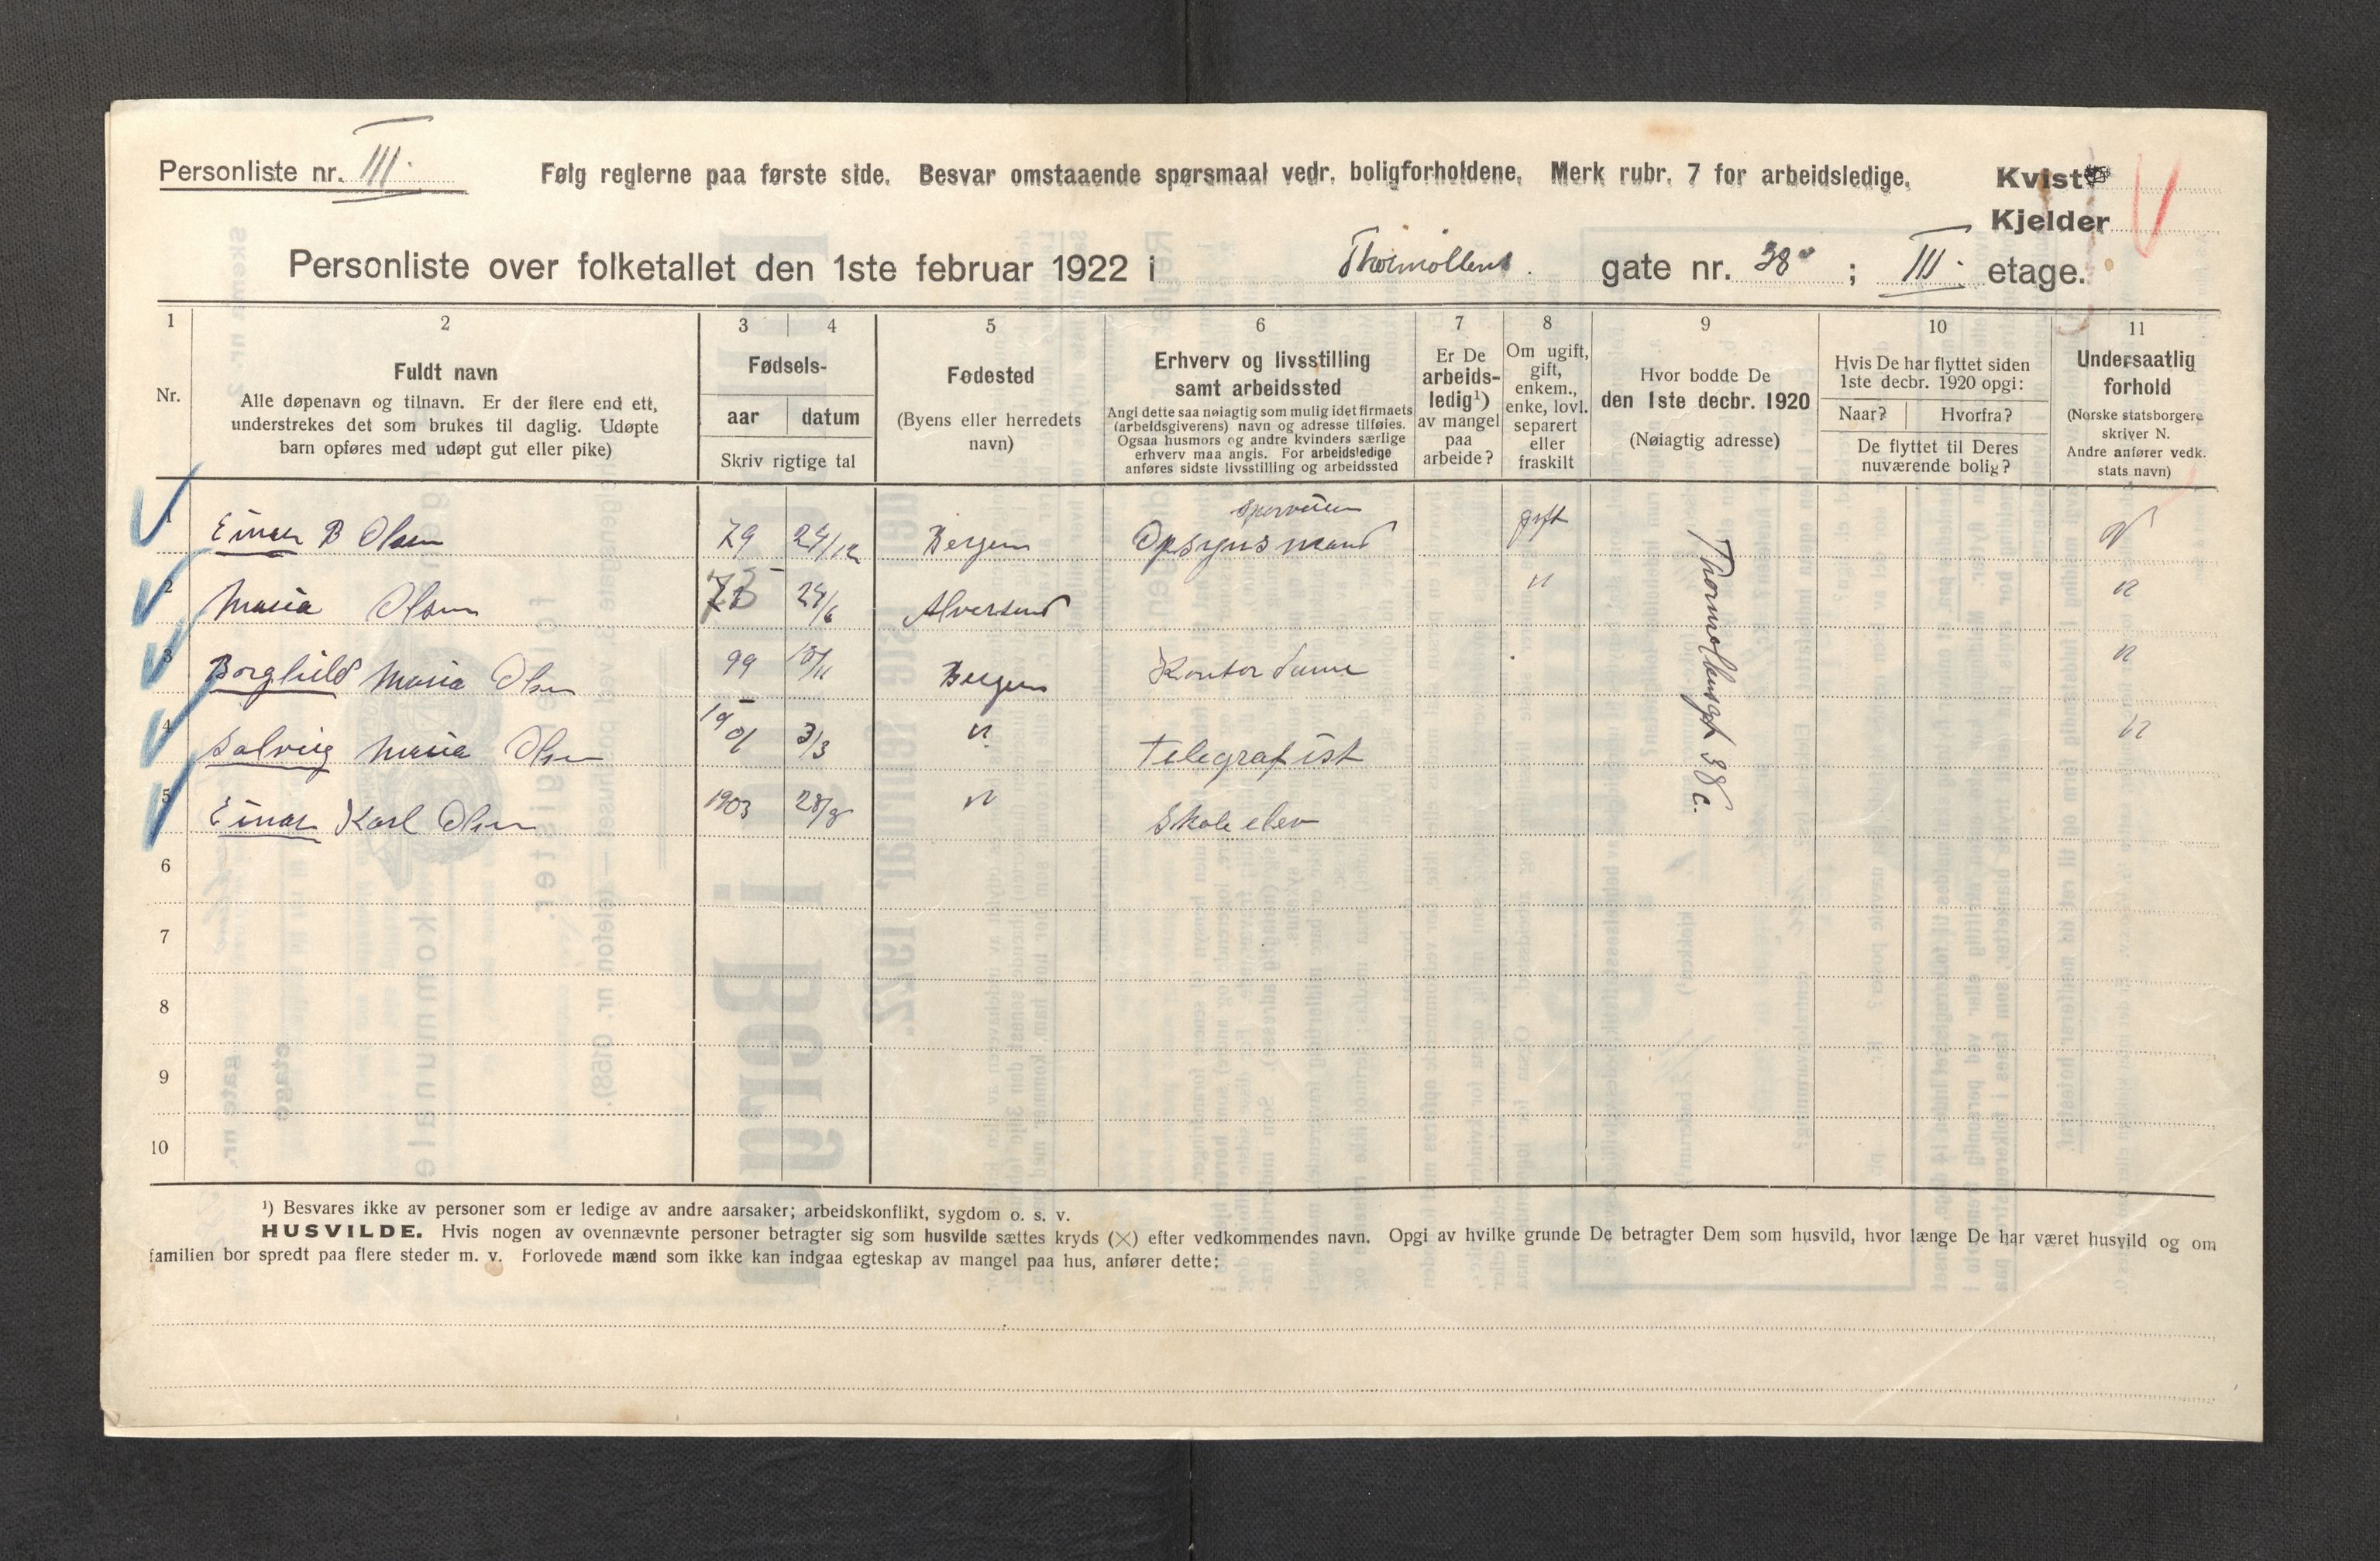 Personliste nr. III.
Følg reglerne paa første side. Besvar omstaaende spørsmaal vedr. boligforholdene. Merk rubr. 7 for arbeidsledige.
Kvist
Kjelder
Personliste over folketallet den 1ste februar 1922 i Thormøllens gate nr. 38 ; III. etage.
1 2 3 4 5 6 7 8 9 10 11
Nr.
Fuldt navn
Alle døpenavn og tilnavn. Er der flere end ett,
understrekes det som brukes til daglig. Udøpte
barn opføres med udøpt gut eller pike)
Fødsels-
aar datum
Skriv rigtige tal
Fødested
(Byens eller herredets
navn)
Erhverv og livsstilling
samt arbeidssted
Angi dette saa nøiagtig som mulig idet firmaets
(arbeidsgiverens) navn og adresse tilføies.
Ogsaa husmors og andre kvinders særlige
erhverv maa angis. For arbeidsledige
anføres sidste livsstilling og arbeidssted
Er De
arbeids-
ledig¹)
av mangel
paa
arbeide?
Om ugift,
gift,
enkem.,
enke, lovl.
separert
eller
fraskilt
Hvor bodde De
den 1ste decbr. 1920
(Nøiagtig adresse)
Hvis De har flyttet siden
1ste decbr. 1920 opgi:
Naar? Hvorfra?
De flyttet til Deres
nuværende bolig?
Undersaatlig
forhold
(Norske statsborgere
skriver N.
Andre anfører vedk.
stats navn)
1 Einar B Olsen 79 24/12 Bergen Sporveien Opsynsmand gift Thormøllensgt 38 c. N
2 Maria Olsen 24/6 Alversund " "
3 Borghild Maria Olsen 99 Bergen Kontordame "
4 Solveig Maria Olsen 1901 3/3 " Telegrafist "
5 Einar Karl Olsen 1903 28/8 " Skoleelev
6
7
8
9
10
¹) Besvares ikke av personer som er ledige av andre aarsaker; arbeidskonflikt, sygdom o. s. v.
HUSVILDE. Hvis nogen av ovennævnte personer betragter sig som husvilde sættes kryds (×) efter vedkommendes navn. Opgi av hvilke grunde De betragter Dem som husvild, hvor længe De har været husvild og om
familien bor spredt paa flere steder m. v. Forlovede mænd som ikke kan indgaa egteskap av mangel paa hus, anfører dette: